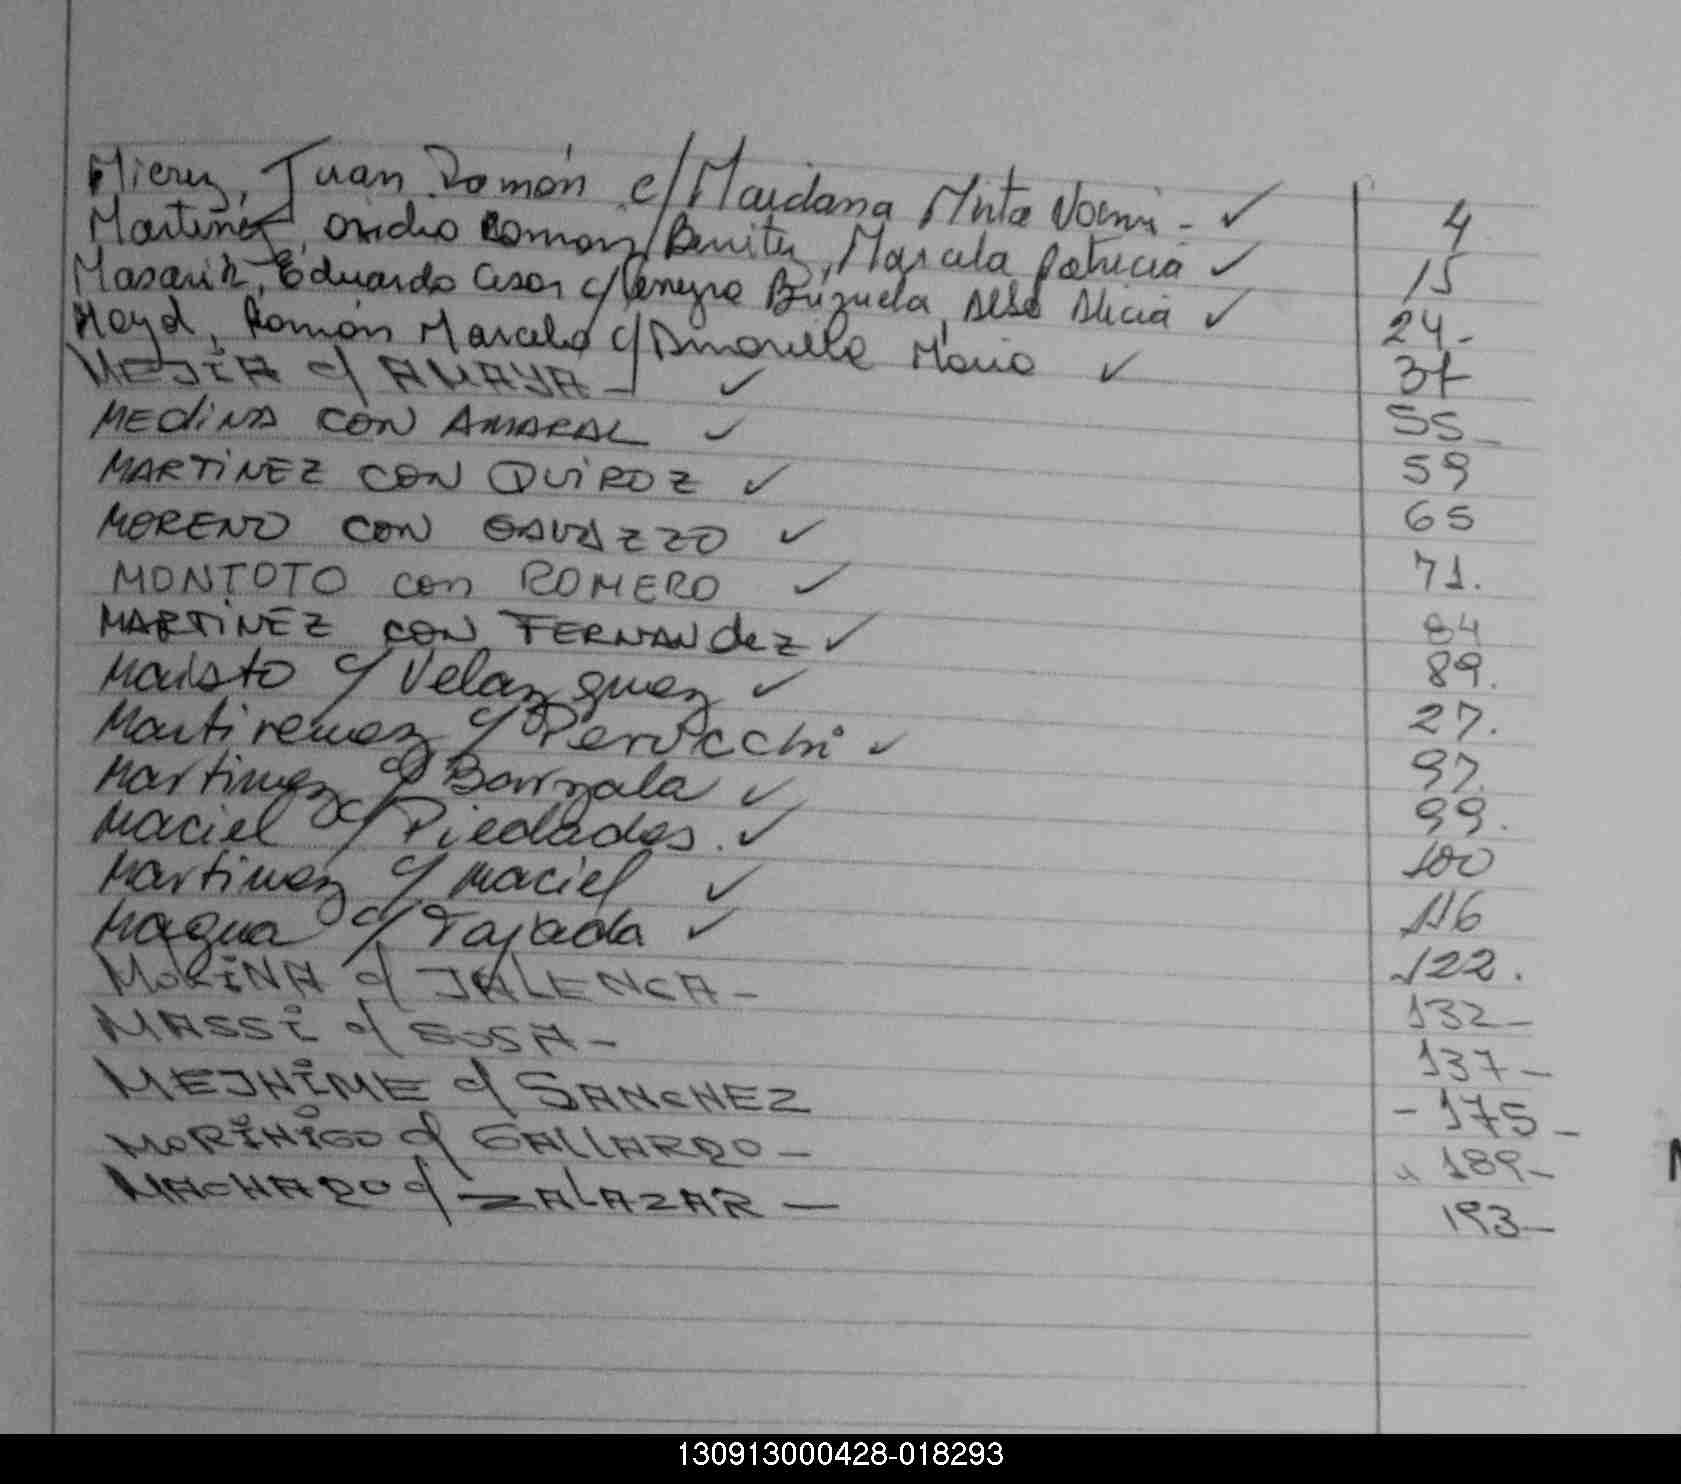 Mierez, Juan Ramón c/ Maidana Mirta Noemi - ✓ 4
Martinez, Ovidio Ramon c/ Benitez, Marcela Patricia ✓ 15
Eduardo Cesar c/ Brizuela Alicia ✓ 24-
Ramón Marcelo c/ Amarilla Maria ✓ 37
MEJIA c/ AMAYA - ✓
MEdiNA CON AMARAL ✓ 55-
MARTiNEZ CON QUiROZ ✓ 59
MORENO CON GAVAZZO ✓ 65
MONTOTO con ROMERO ✓ 71.
MARTiNEZ CON FERNANdEZ ✓ 84
Maisto c/ Velazquez ✓ 89.
Martirenez c/ Perucchi ✓ 27.
Martinez c/ Barzala ✓ 97.
Maciel c/ Piedades. ✓ 99.
Martinez c/ Maciel ✓ 100
Magua c/ Tajada ✓ 116
MORiNA c/ JALENCA - 122.
MASSi c/ SOSA - 132-
MEJHiME c/ SANCHEZ 137-
MORiNiGO c/ GALLARDO - - 175-
MACHADO c/ ZALAZAR - 189-
193-
130913000428-018293